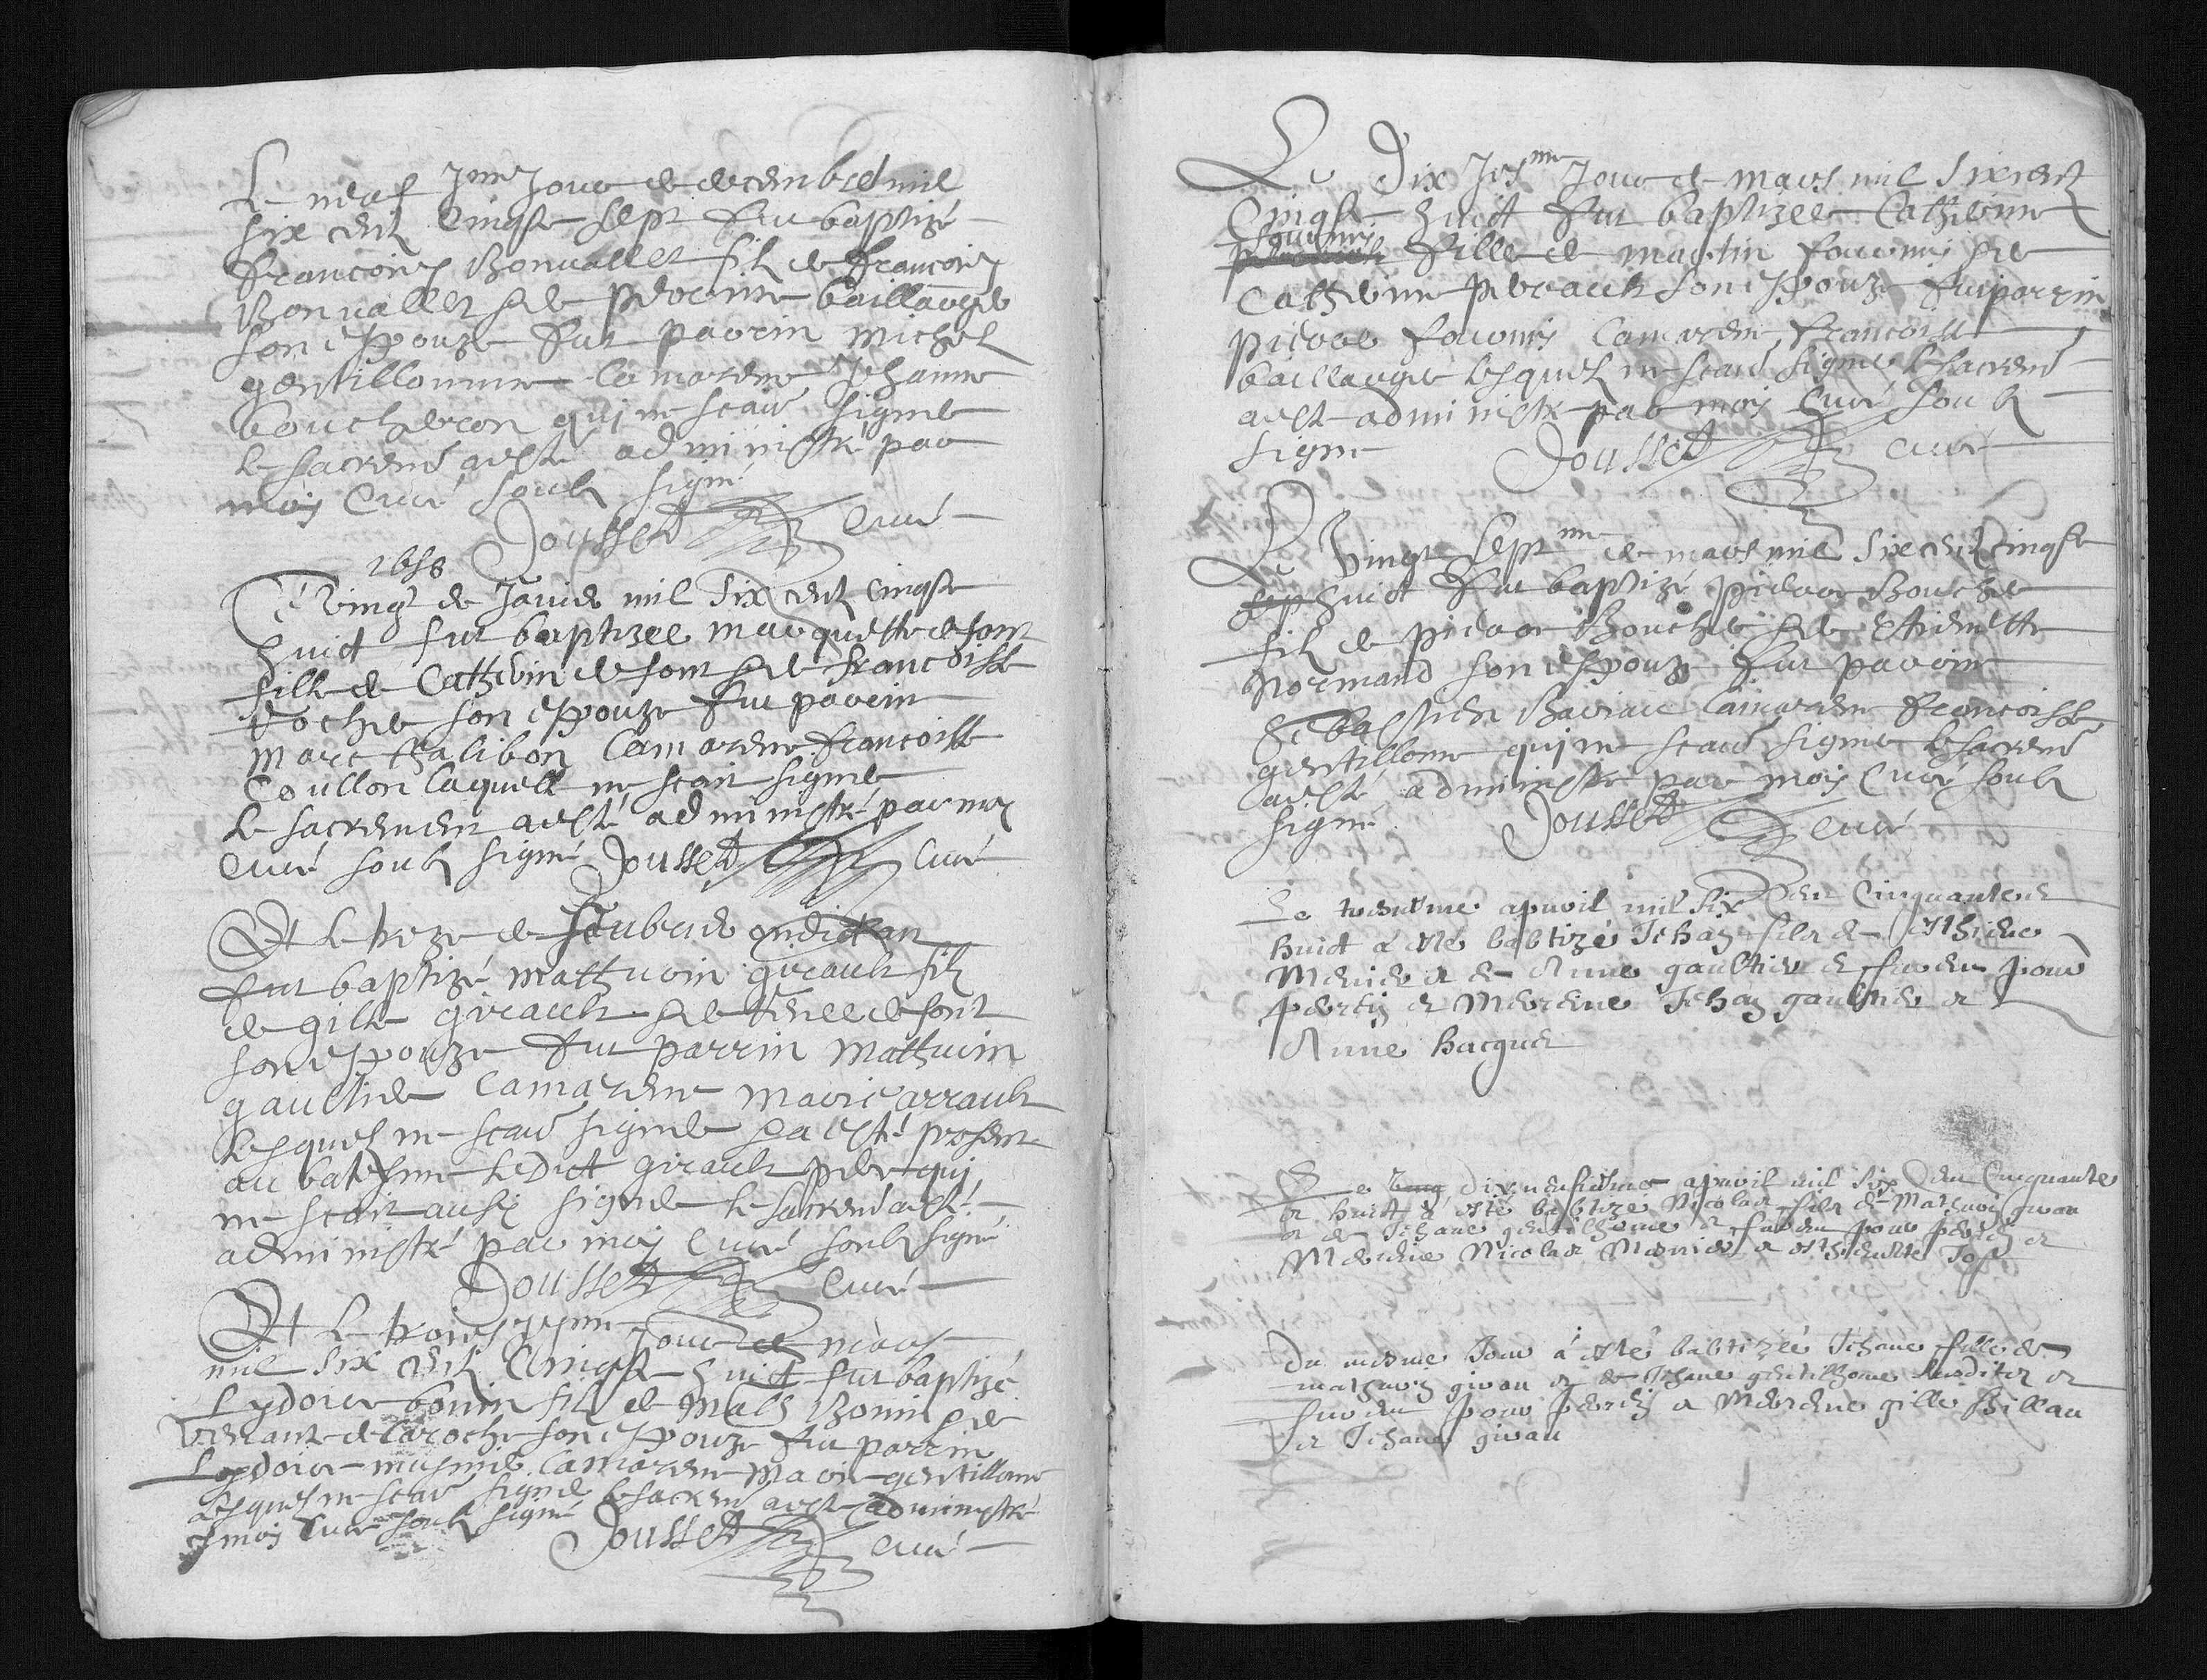 Le neuf Jme Jour de decembre mil
six centz cinqte sept fut baptizé
francois Bonvallet filz de francois
Bonvallet & de perrine baillarger
son espouze fut parrin michel
gentillomme la marene Jehanne
boucheron qui ne scavt signer
le sacremt a esté administré par
moy Curé soubz signé
Jousset Curé
1658
Le Vingt de Janvier mil six centz cinqte
huict fut baptizee marquette de font
fille de Catherin de font & de francoisse
rocher son espouze fut parrin
marc thalibon la marene francoisse
Coullon laquelle ne scait signer
le sacrement a esté administré par moy
Curé soubz signé Jousset Curé
Et le treze de feubrier ondict an
fut baptizé mathurin girault filz
de gille girault & de renee de font
son espouze fut parrin mathurin
gaultier la marene marie arrault
lesquelz ne scavt signer & a esté present
au batesme ledict girault pere qui
ne scait aussy signer le sacremt a esté
administré par moy Curé soubz signé
Jousset Curé
Et le trois yesme Jour de mars
mil six centz cinqte huict fut baptizé
Lydoire bonin filz de Bonin & de
de laroche son espouze fut parrin
Lydoire la marene marie gentillome
lesquelz ne scavt signer le sacremt a esté administré
moy Curé soubz signé
Jousset curé
Le dix Jesme Jour de mars mil six centz
cinqte huict fut baptizee Catherinne
fourmy
fille de martin fourmy & de
Catherinne perault son espouze fut parrin
pierre fourmy la marene francoisse
baillarger lesquelz ne scavt signer le sacremt
a esté administré par moy Curé soubz
signé Jousset curé
Le Vingt septme de mars mil six centz cinqte
sep huict fut baptizé pierre Boucher
filz de pierre Boucher & de Estiennette
Normand son espouze fut parrin
Sebastien la marene francoisse
gentillome qui ne scavt signer le sacremt
a esté administré par moy Curé soubz
signé Jousset curé
Le apvril mil six cent Cinquante et
huict a esté babtizé Jehan filz de
Menier et de Anne gaultier et furent pour
perrin et Mereine Jehan gaultier et
Anne hacquet
Le dixneufiesme apvril mil six cent Cinquante
et huict a esté babtizé Nicolas filz de Mathurin girau
et de Jehane gentilhome et furent pour perrin et
Mereine Nicolas Menier et
Du mesme Jour a esté babtizeé Jehane fille de
mathurin girau et de Jehane gentilhome et
furent pour perrin et Mereine gille
et Jehane girau